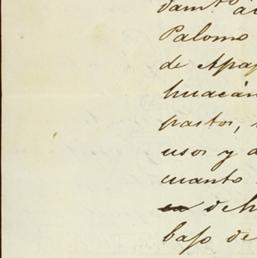 damto. á
Palomo
de Apa
huacán
pastos,
usos y
cuanto
deh
bajo de